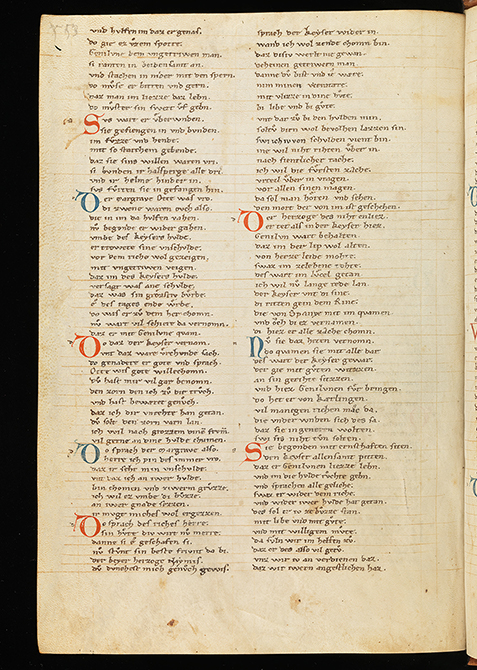 vnd hvlfen im daz er genas.
do gie ez vzem spotte.
Genilvne dem vngetriwen man.
si ranten in beidenthalben an.
vnd stachen in nider mit den spern.
do mvse er bitten vnd gern.
daz man im liezze daz lebn.
do mvster sin swert vf gebn.
Svs wart er vberwnden.
Sie gefiengen in vnd bunden.
im fvzze vnd hende.
mit so starchem gebende.
daz sie sins willen waren vri.
si bunden ir halsperge alle dri.
vnd ir helme hinder in.
svs fvrten sie in gefangen hin.
Der margrave Otte was vro.
di zwene waren ovch also.
die in im da hvlfen vahen.
nv begonde er wider gahen.
vmbe des keysers hulde.
er trowete sine vnschulde.
vor dem riche wol gezeigen.
mit vngetriwen veigen.
daz im des keysers hvlde.
versaget was ane schulde.
daz was sin grozistv bvrde.
e des tages ende wrde.
do was ez zv dem her chomn.
nv wart vil schiere da vernomn.
daz er mit Genilvne quam.
Do daz der keyser vernam.
vnt daz ware vrchunde sach.
do genadete er gote vnd sprach.
Otte wis gote willechomn.
dv hast mir vil gar benomn.
den zorn den ich zv dir trvch.
vnd hast bewaret genvch.
daz ich dir vnrehte han getan.
dv solt den zorn varn lan.
ich wil nach grozzen
vil gerne an dine hvlde chumen.
Do sprach der margrave also.
herre ich pin des immer vro.
daz ir sehet min vnschulde.
vnt daz ich an iwer hulde.
bin chomen vnd
ich wil ez vmbe di
an iwer gnade sezzen.
ir mvget michel wol ergezzen.
Do sprach des riches herre.
sin hvte div wirt nv merre.
danne si e geschafen si.
nv stvnt sin beste frivnt da bi.
der beyer herzoge naymis.
dv dunchest mich genvch gewis.
sprach der keyser wider in.
wand ich wol rende chomn bin.
daz disiv werlt nie gewan.
deheinen getriwern man.
danne dv bist vnd ie ware.
nim minen verratare.
mit vlizze in dine hvte.
di libe vnd di gvte.
vnd daz dv bi den hulden min.
solt dir wol bevolhen lazzen sin.
swi ich ie von schulden vient bin.
ich wil niht rihten vber in.
nach fientlicher rache.
ich wil die fvrsten rache.
vrteil vber in vragen.
vor allen sinen magen.
da sol man horen vnd sehen.
den mort der von im ist geschehen.
Der herzoge des niht enliez.
er tet als in der keyser hiez.
Genilvn wart behalten.
daz im der lip wol alten.
von herze leide mohte.
swaz im zelebene tohte.
des wart im lvzzel getan.
ich wil nv lange rede lan.
der keyser vnt di sine.
di ritten gein dem Rine.
die von Yspanye mit im quamen.
vnd ovch di ez vernamen.
di hiez er alle zache chomn.
Nv sie daz heten vernomn.
do quamen sie mit alle dar.
des wart der keyser gewar.
der gie mit gvten witzzen.
an sin gerihte sitzzen.
vnd hiez Genilvnen fvr bringen.
do het er von Karlingen.
vil manegen richen mage da.
die vnder wnben sich des sa.
daz sie in generen wolten.
swi sis niht tvn solten.
Sie begonden mit ernsthaften siten.
den keyser allensamt pitten.
daz er Genilvnen liezze lebn.
vnd im die hulde rvhte gebn.
vnd sprachen alle geliche.
swaz er wider dem riche.
vnd wider iwer hulde hat getan.
des sol er iv ze bvzze stan.
mit libe vnd mit gvte.
vnd mit willigem mvte.
da svln wir im helfen zv.
daz er des also vil getv.
vnz wir iv an verdienen daz.
daz wir iwern angestlichen haz.